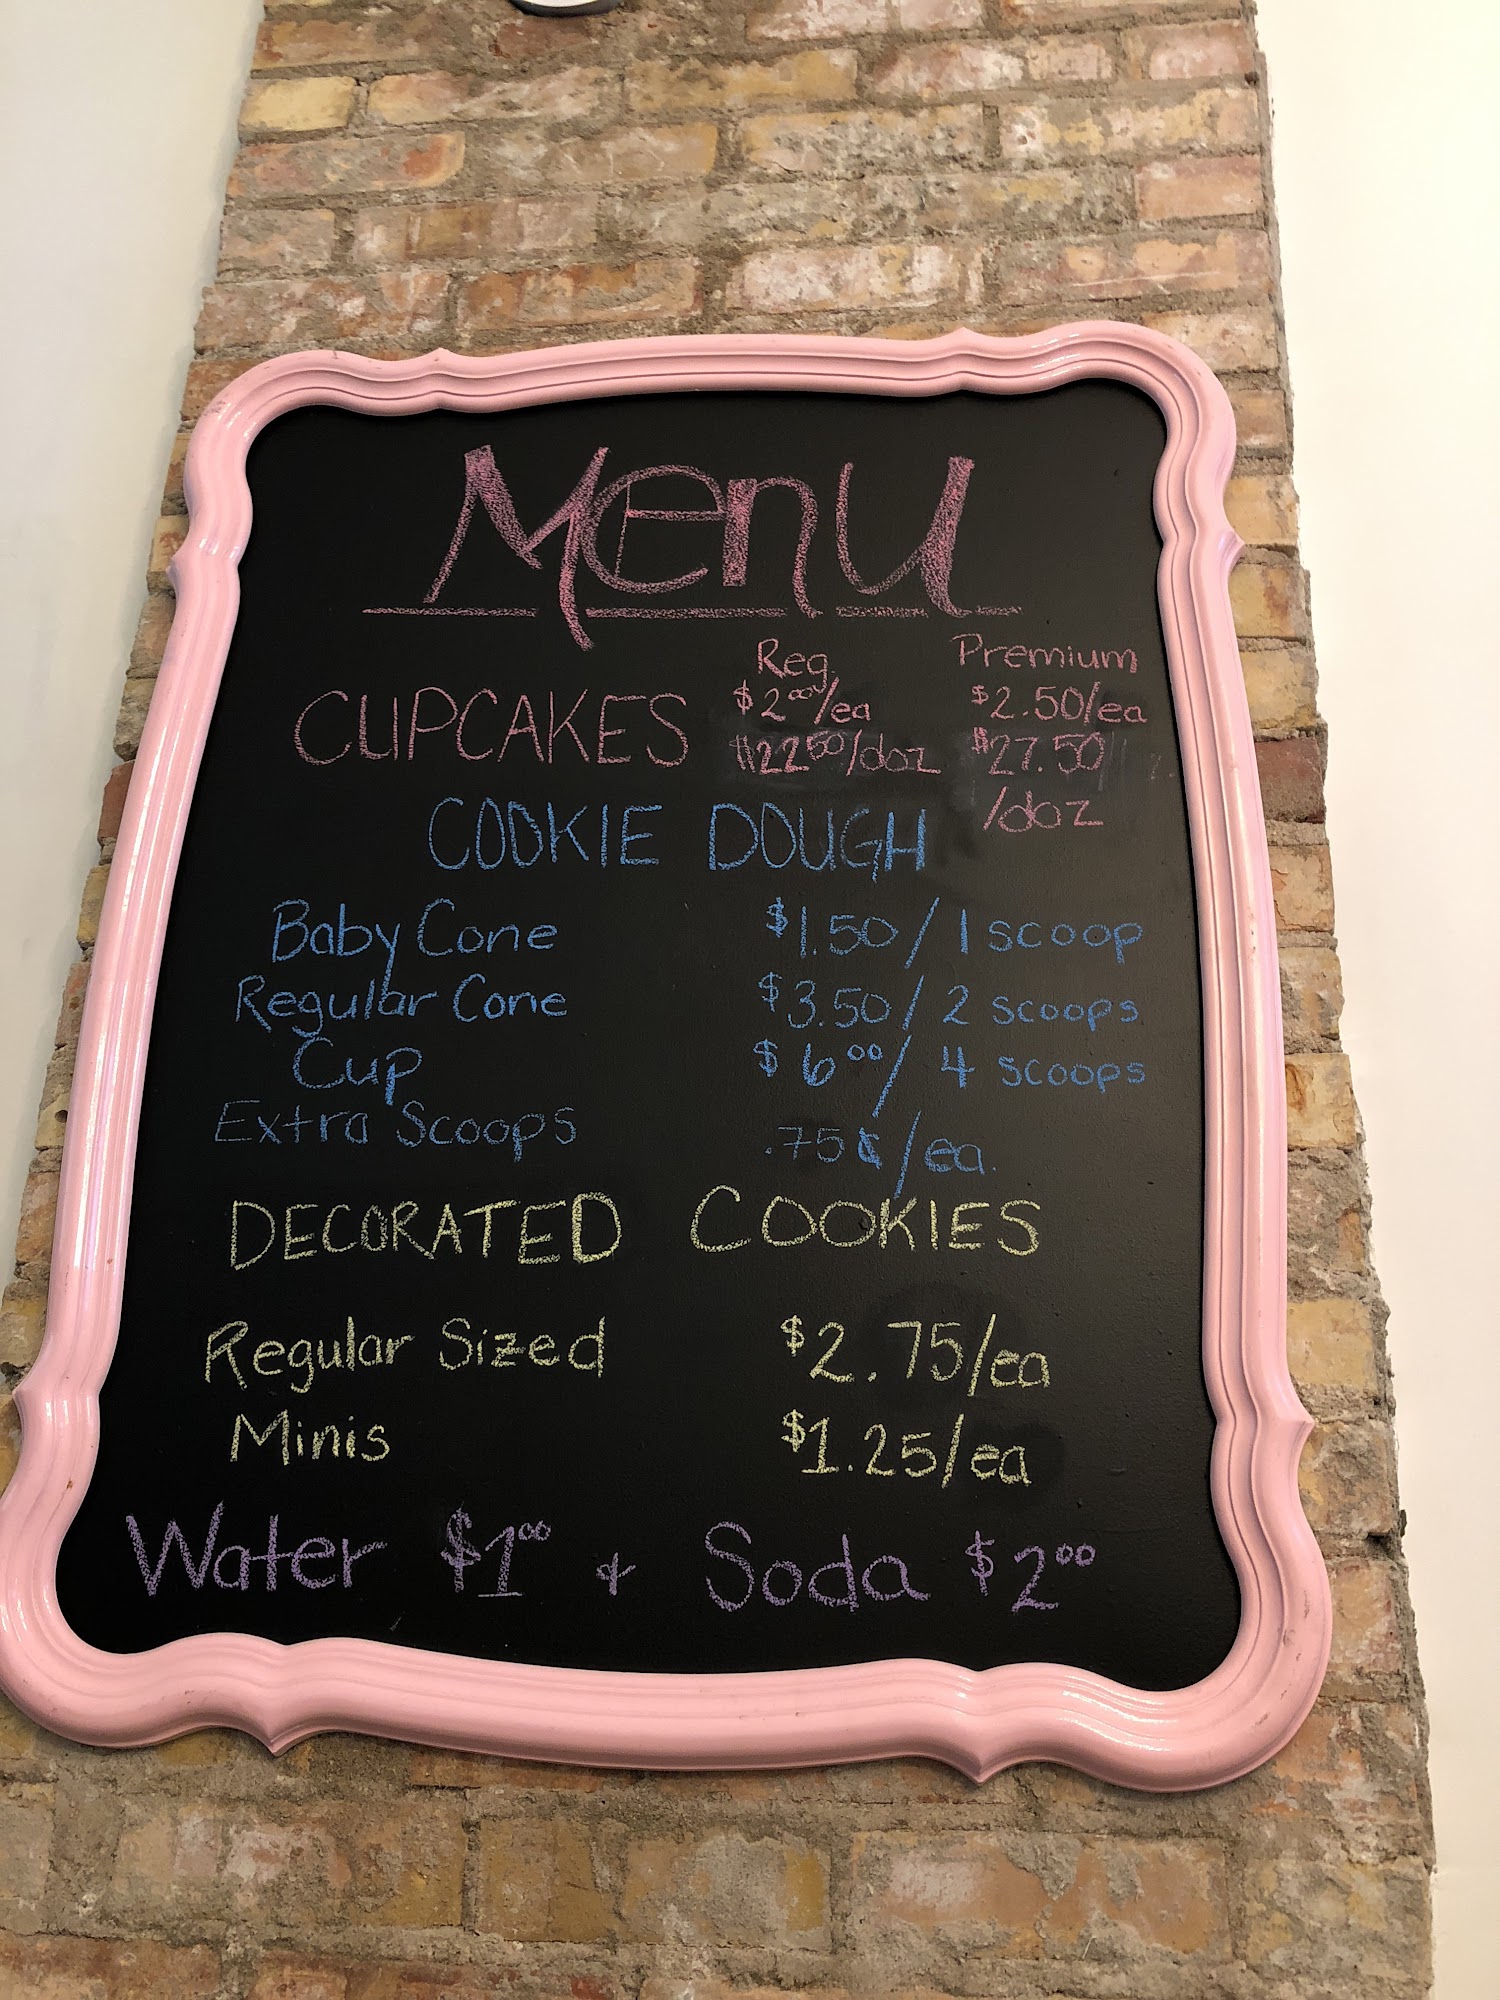 Menu
Reg Premium
CUPCAKES $2.00/ea $2.50/ea
$22.50/doz $27.50
/doz
COOKIE DOUGH
Baby Cone $1.50/1 scoop
Regular Cone $3.50/2 scoops
Cup $6.00/4 scoops
Extra Scoops .75¢/ea.
DECORATED COOKIES
Regular Sized $2.75/ea
Minis $1.25/ea
Water $1.00 + Soda $2.00